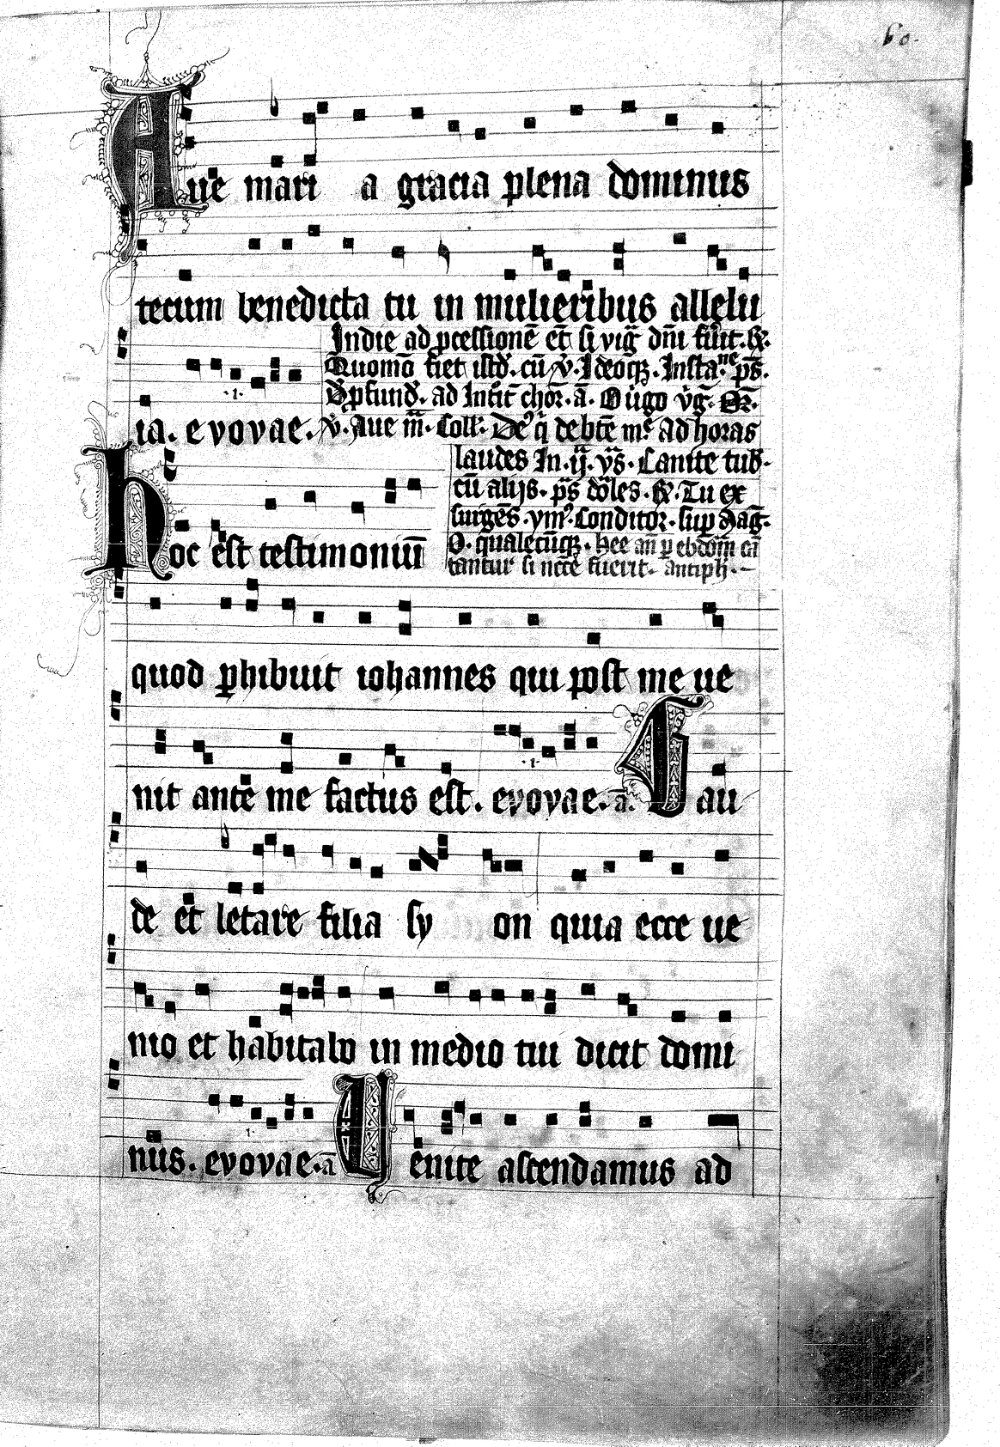 60.
Aue mari a gracia plena dominus
tecum benedicta tu in mulieribus allelu
Indie ad pcessionē et̄ si viḡ dn̄i fūit. R.
Quomō fiet istd. cū v̄. Ideoq. Insta.ne p̄s.
ad Intīt chor̄. ā. O uigo vḡ.
ia. evovae. v̄. Aue m̄. Coll. De q̄ debt̄e me Ad horas
laudes In .ij. vs̄. Canite tub.
cū alijs. p̄s dōles. R. Tu ex
surgēs. ym9. Conditor. sup maḡ.
O. qualecūq. hee an̄ p ebdom̄ cā
tantur si ncc̄e fuerit. antiph.
hoc est testimoniū
quod phibuit iohannes qui post me ue
nit ante me factus est. evovae. ā. Gau
de et letare filia sy on quia ecce ue
nio et habitabo in medio tui dicit domi
nus. evovae. ā Uenite ascendamus ad